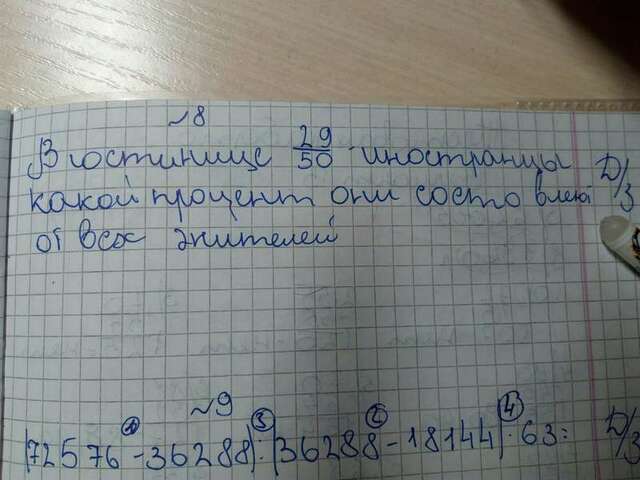 ~8
В гостинице 29/50 иностранцы Д/з
какой процент они состовлею
от всех жителей
~9
① ③ ② ④
(72576-36288):(36288-18144)·63= Д/з